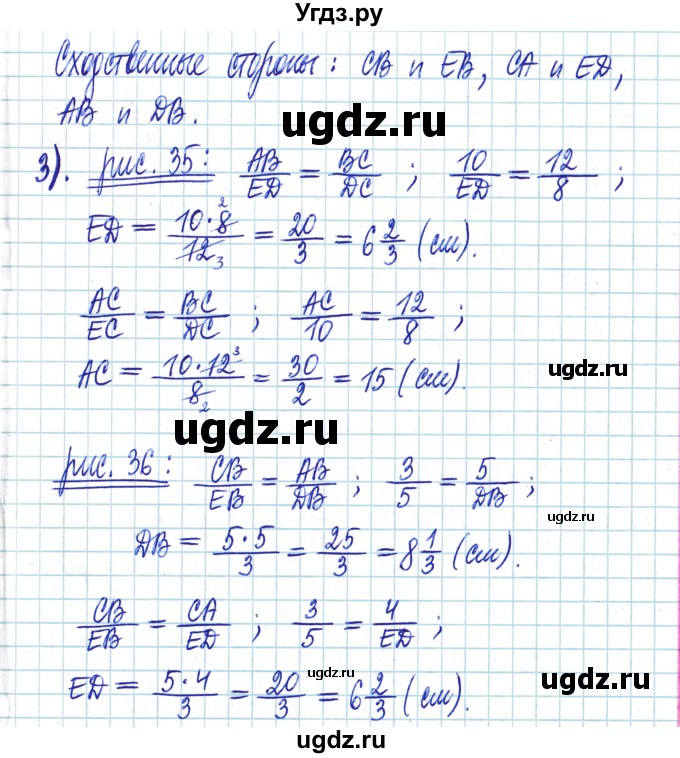 Угдз.ру
Сходственные стороны: CB и EB, CA и ED,
AB и DB.
ugdz.ru
3). рис. 35: AB/ED = BC/DC ; 10/ED = 12/8 ;
ED = 10·8/12 = 20/3 = 6 2/3 (см).
2
3
AC/EC = BC/DC ; AC/10 = 12/8 ;
AC = 10·12/8 = 30/2 = 15 (см).
3
2
ugdz.ru
ugdz.ru
рис. 36: CB/EB = AB/DB ; 3/5 = 5/DB ;
ugdz.ru
DB = 5·5/3 = 25/3 = 8 1/3 (см).
ugdz.ru
CB/EB = CA/ED ; 3/5 = 4/ED ;
ED = 5·4/3 = 20/3 = 6 2/3 (см).
ugdz.ru
ugdz.ru
ugdz.ru